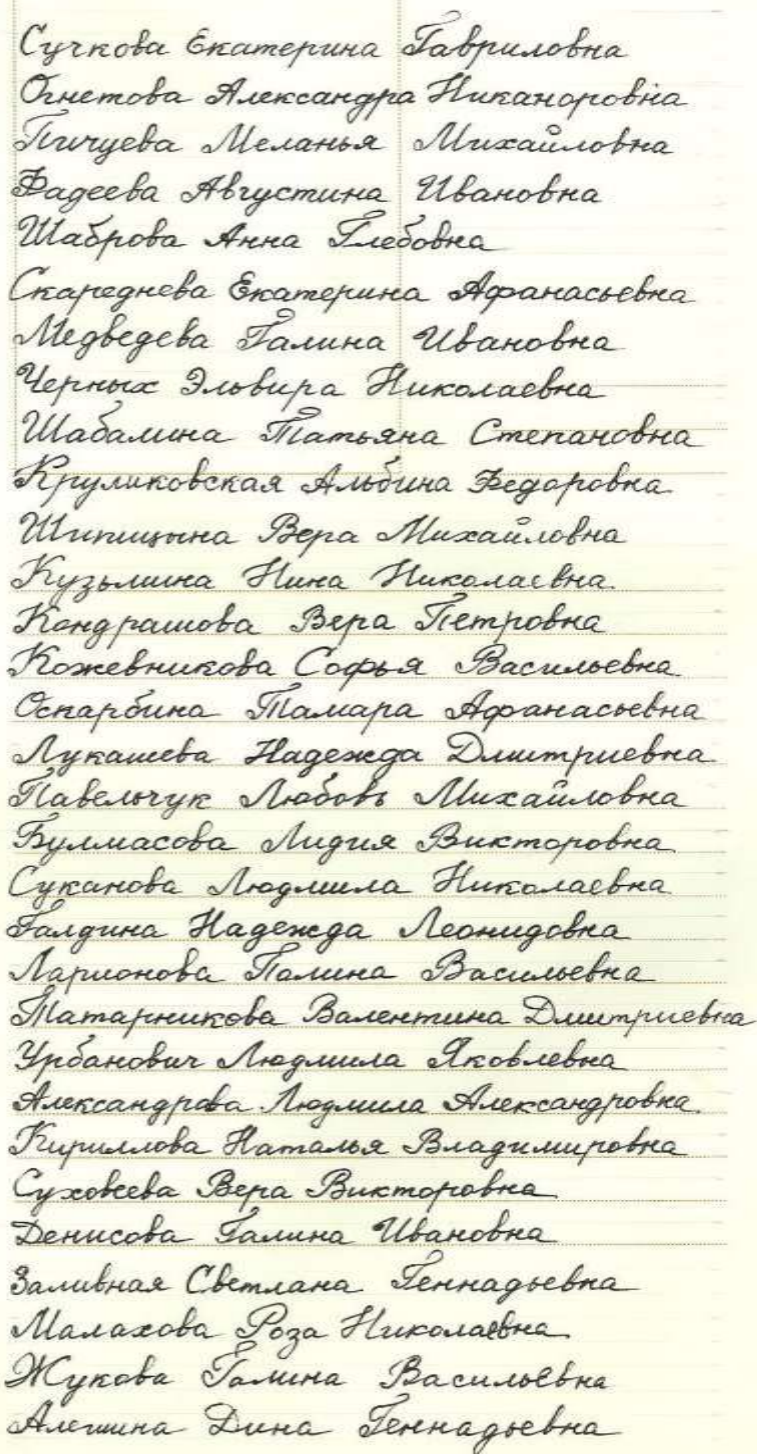 Сучкова Екатерина Гавриловна
Огнетова Александра Никаноровна
Пичуева Меланья Михайловна
Фадеева Августина Ивановна
Шаброва Анна Глебовна
Скареднева Екатерина Афанасьевна
Медведева Галина Ивановна
Черных Эльвира Николаевна
Шабалина Татьяна Степановна
Круликовская Альбина Федоровна
Шипицына Вера Михайловна
Кузьмина Нина Николаевна
Кондрашова Вера Петровна
Кожевникова Софья Васильевна
Оскарбина Тамара Афанасьевна
Лукашева Надежда Дмитриевна
Павельчук Любовь Михайловна
Булмасова Лидия Викторовна
Суканова Людмила Николаевна
Галдина Надежда Леонидовна
Ларионова Галина Васильевна
Татарникова Валентина Дмитриевна
Урбанович Людмила Яковлевна
Александрова Людмила Александровна
Кириллова Наталья Владимировна
Суховеева Вера Викторовна
Денисова Галина Ивановна
Заливная Светлана Геннадьевна
Малахова Роза Николаевна
Жукова Галина Васильевна
Алешина Дина Геннадьевна